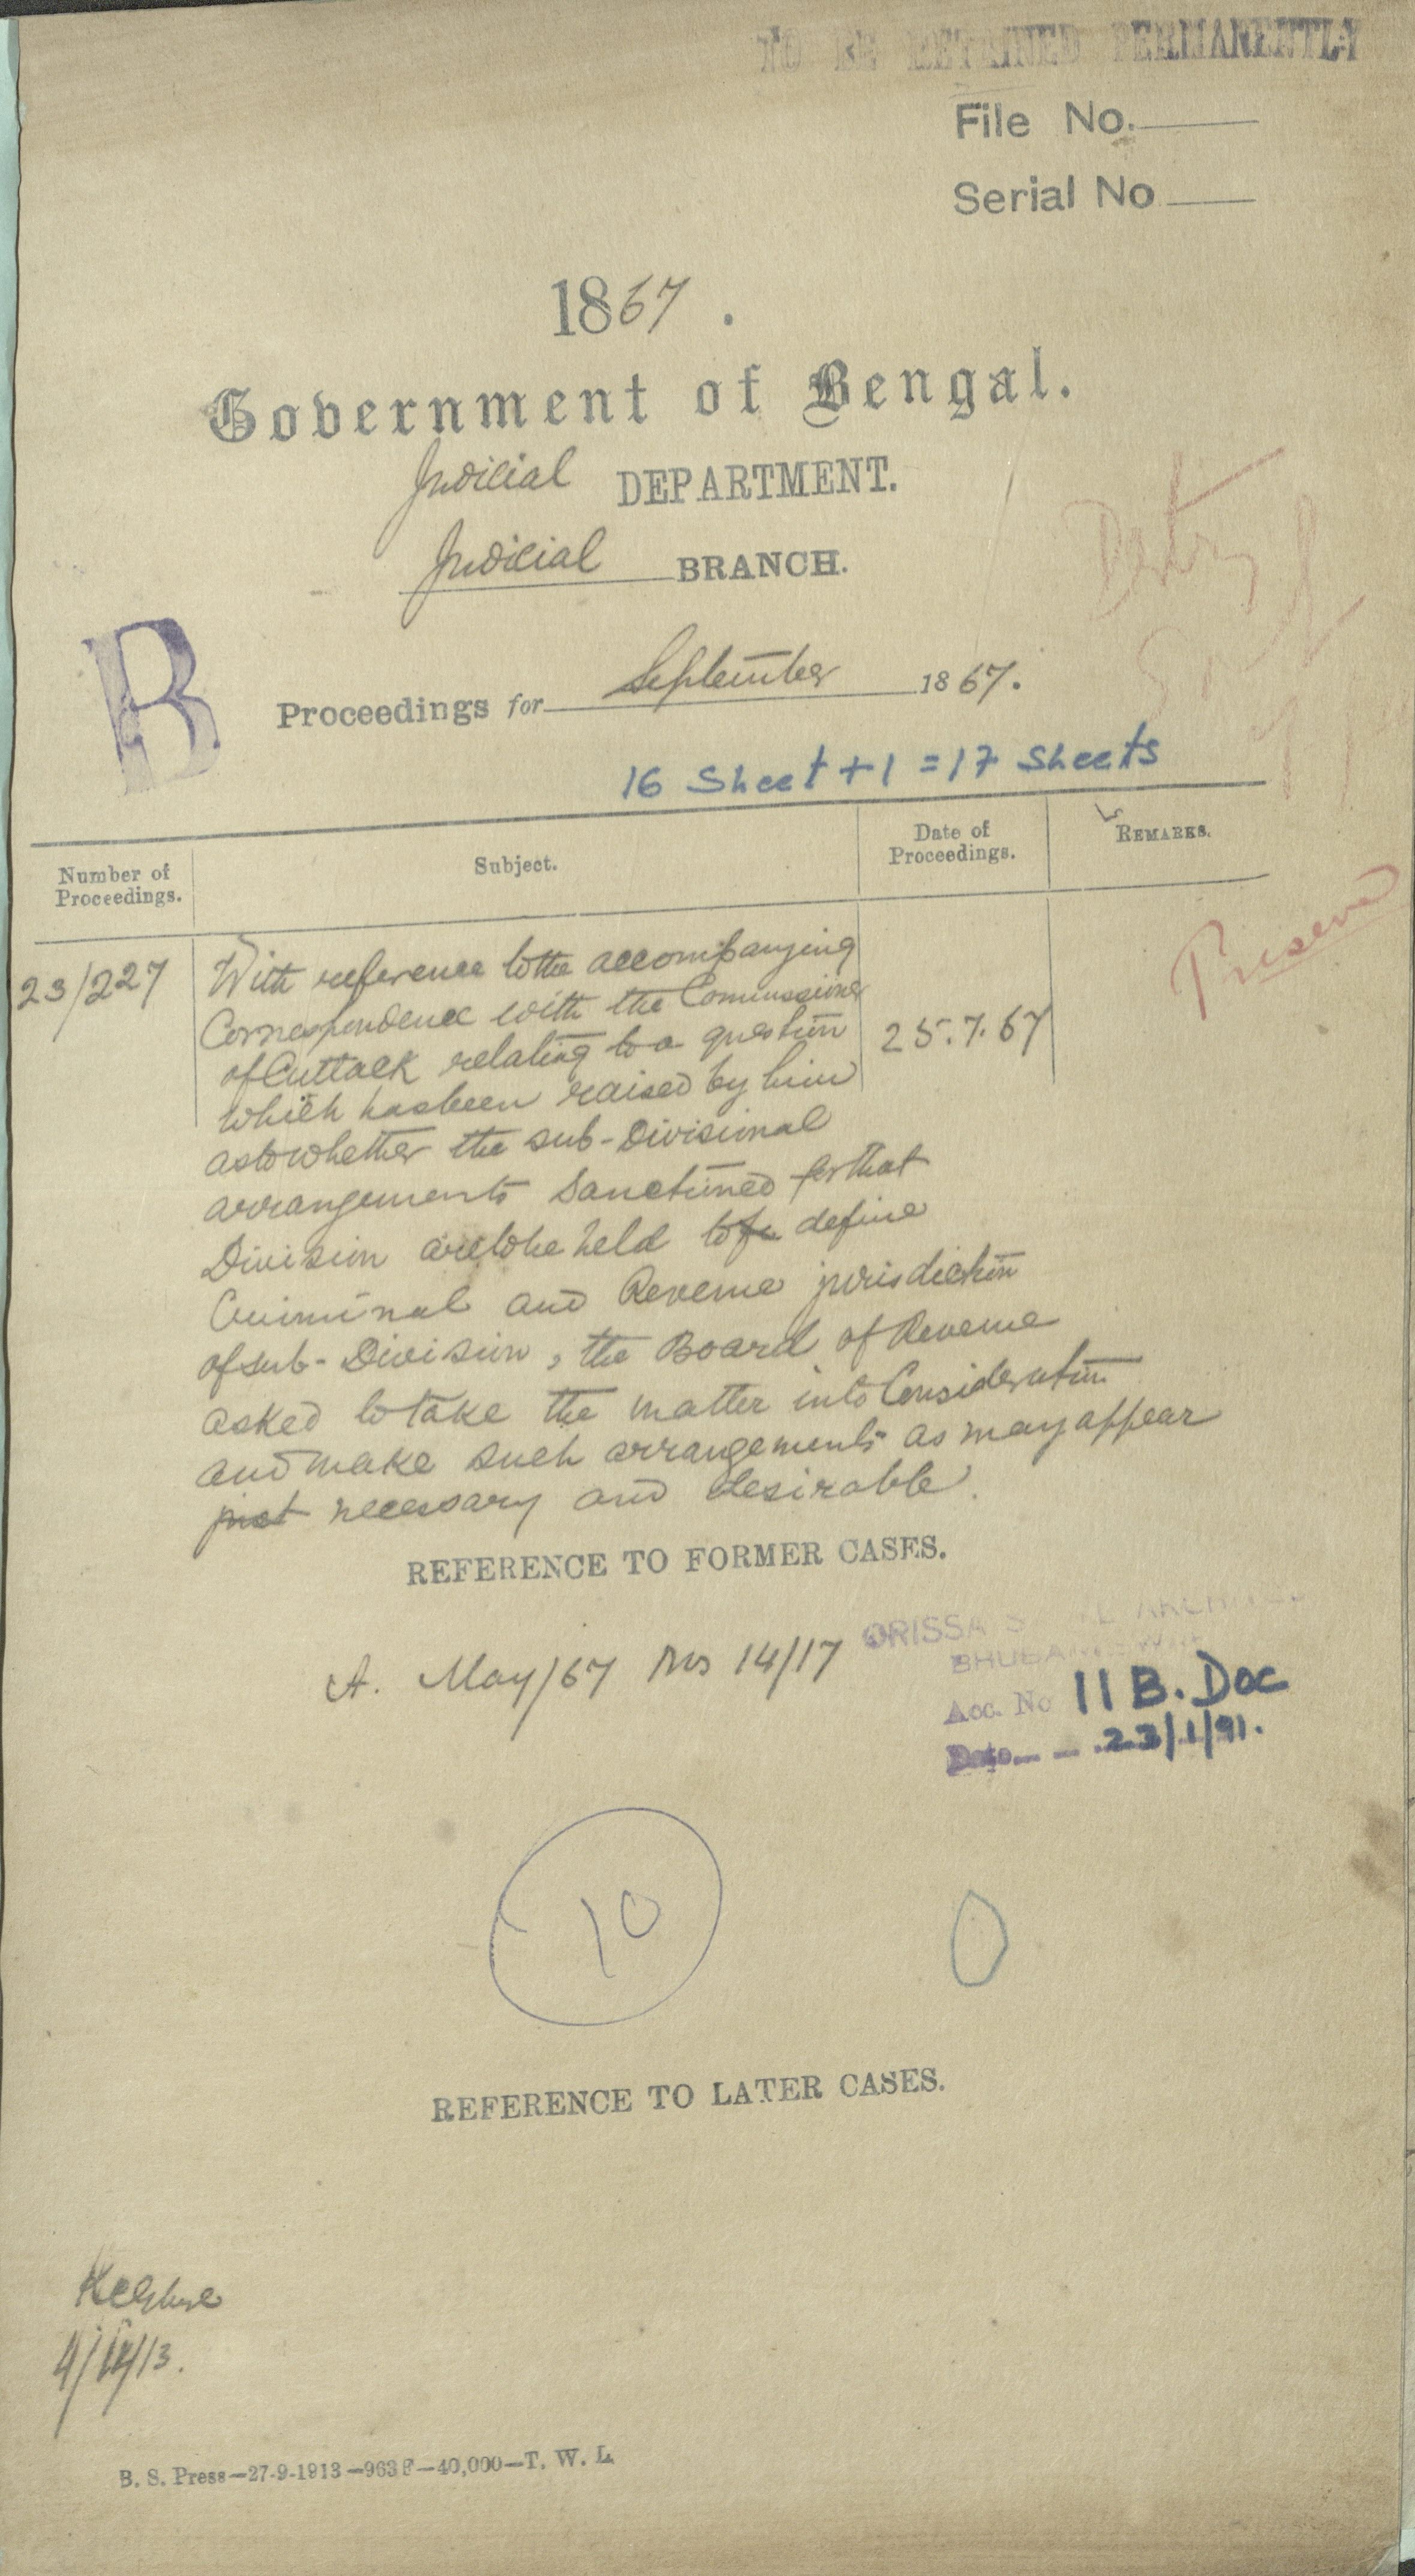 TO BE RETAINED PERMANENTLY
File No.
Serial No
1867.
Government of Bengal.
Judicial DEPARTMENT.
Judicial BRANCH.
B
Proceedings for September 1867.
16 Sheet + 1 = 17 Sheets
Number of Proceedings.
Subject.
Date of Proceedings.
REMARKS.
Preserve
23/227
25.7.67
With reference to the accompanying
Correspondence with the Commissioner
of Cuttack relating to a question
which has been raised by him
as to whether the sub-Divisional
arrangements Sanctioned for that
Division are to be held to define
Criminal and Revenue jurisdiction
of sub-Division, the Board of Revenue
asked to take the matter into Consideration
and make such arrangements as may appear
just necessary and desirable.
REFERENCE TO FORMER CASES.
A. May/67 Nos 14/17
ORISSA STATE ARCHIVES
BHUBANESWAR
Acc. No 11 B. Doc
Date 23/1/91.
10
0
REFERENCE TO LATER CASES.
B. S. Press—27-9-1913—963 F—40,000—T. W. L.